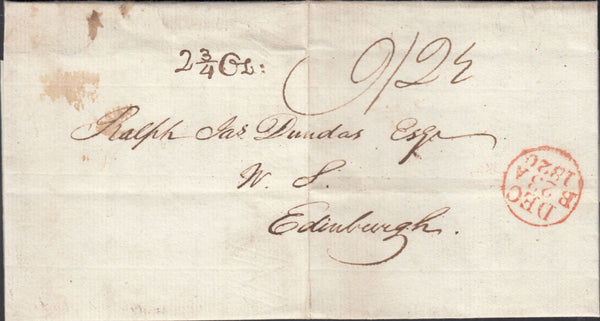 2¾ Oz:
Ralph Jas Dundas Esqr
W. S.
Edinburgh.
DEC
B 23 A
1820